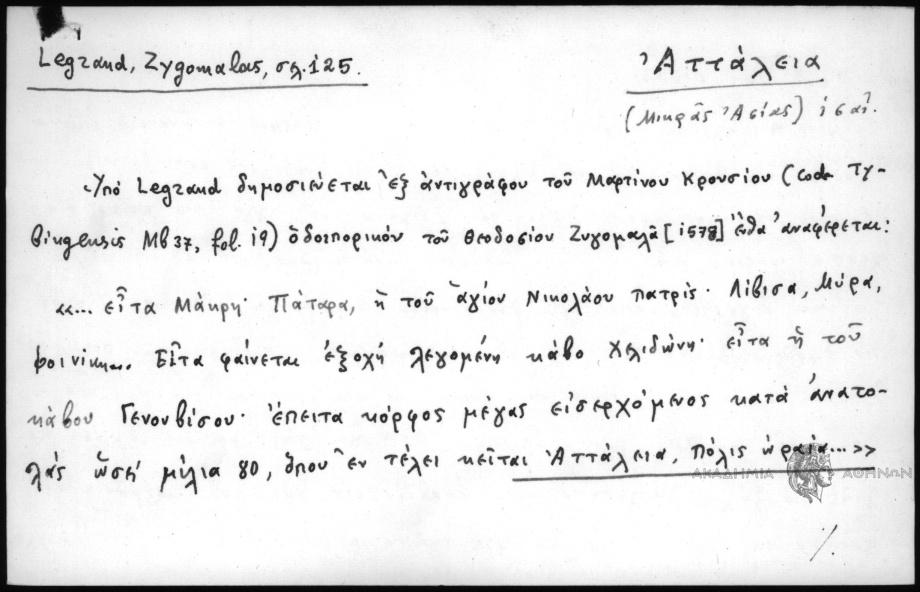 Legrand, Zygomalas, σελ. 125.
Ἀττάλεια
(Μικρᾶς Ἀσίας)
Ὑπό Legrand δημοσιεύεται ἐξ ἀντιγράφου τοῦ Μαρτίνου Κρουσίου (code Ty-
bingensis Mb 37, fol. 19) ὁδοιπορικόν τοῦ Θεοδοσίου Ζυγομαλᾶ [1578] ἔνθα ἀναφέρεται:
«... εἶτα Μάκρη· Πάταρα, ἡ τοῦ ἁγίου Νικολάου πατρίς· Λίβισα, Μύρα,
φοινίκη... Εἶτα φαίνεται ἐξοχή λεγομένη κάβο Χελιδώνη· εἶτα ἡ τοῦ
κάβου Γενουβίσου· ἔπειτα κόρφος μέγας εἰσερχόμενος κατά ἀνατο-
λάς ὡσεί μίλια 80, ὅπου ἐν τέλει κεῖται Ἀττάλεια, πόλις ὡραία...»
ΑΚΑΔΗΜΙΑ ΑΘΗΝΩΝ
./.